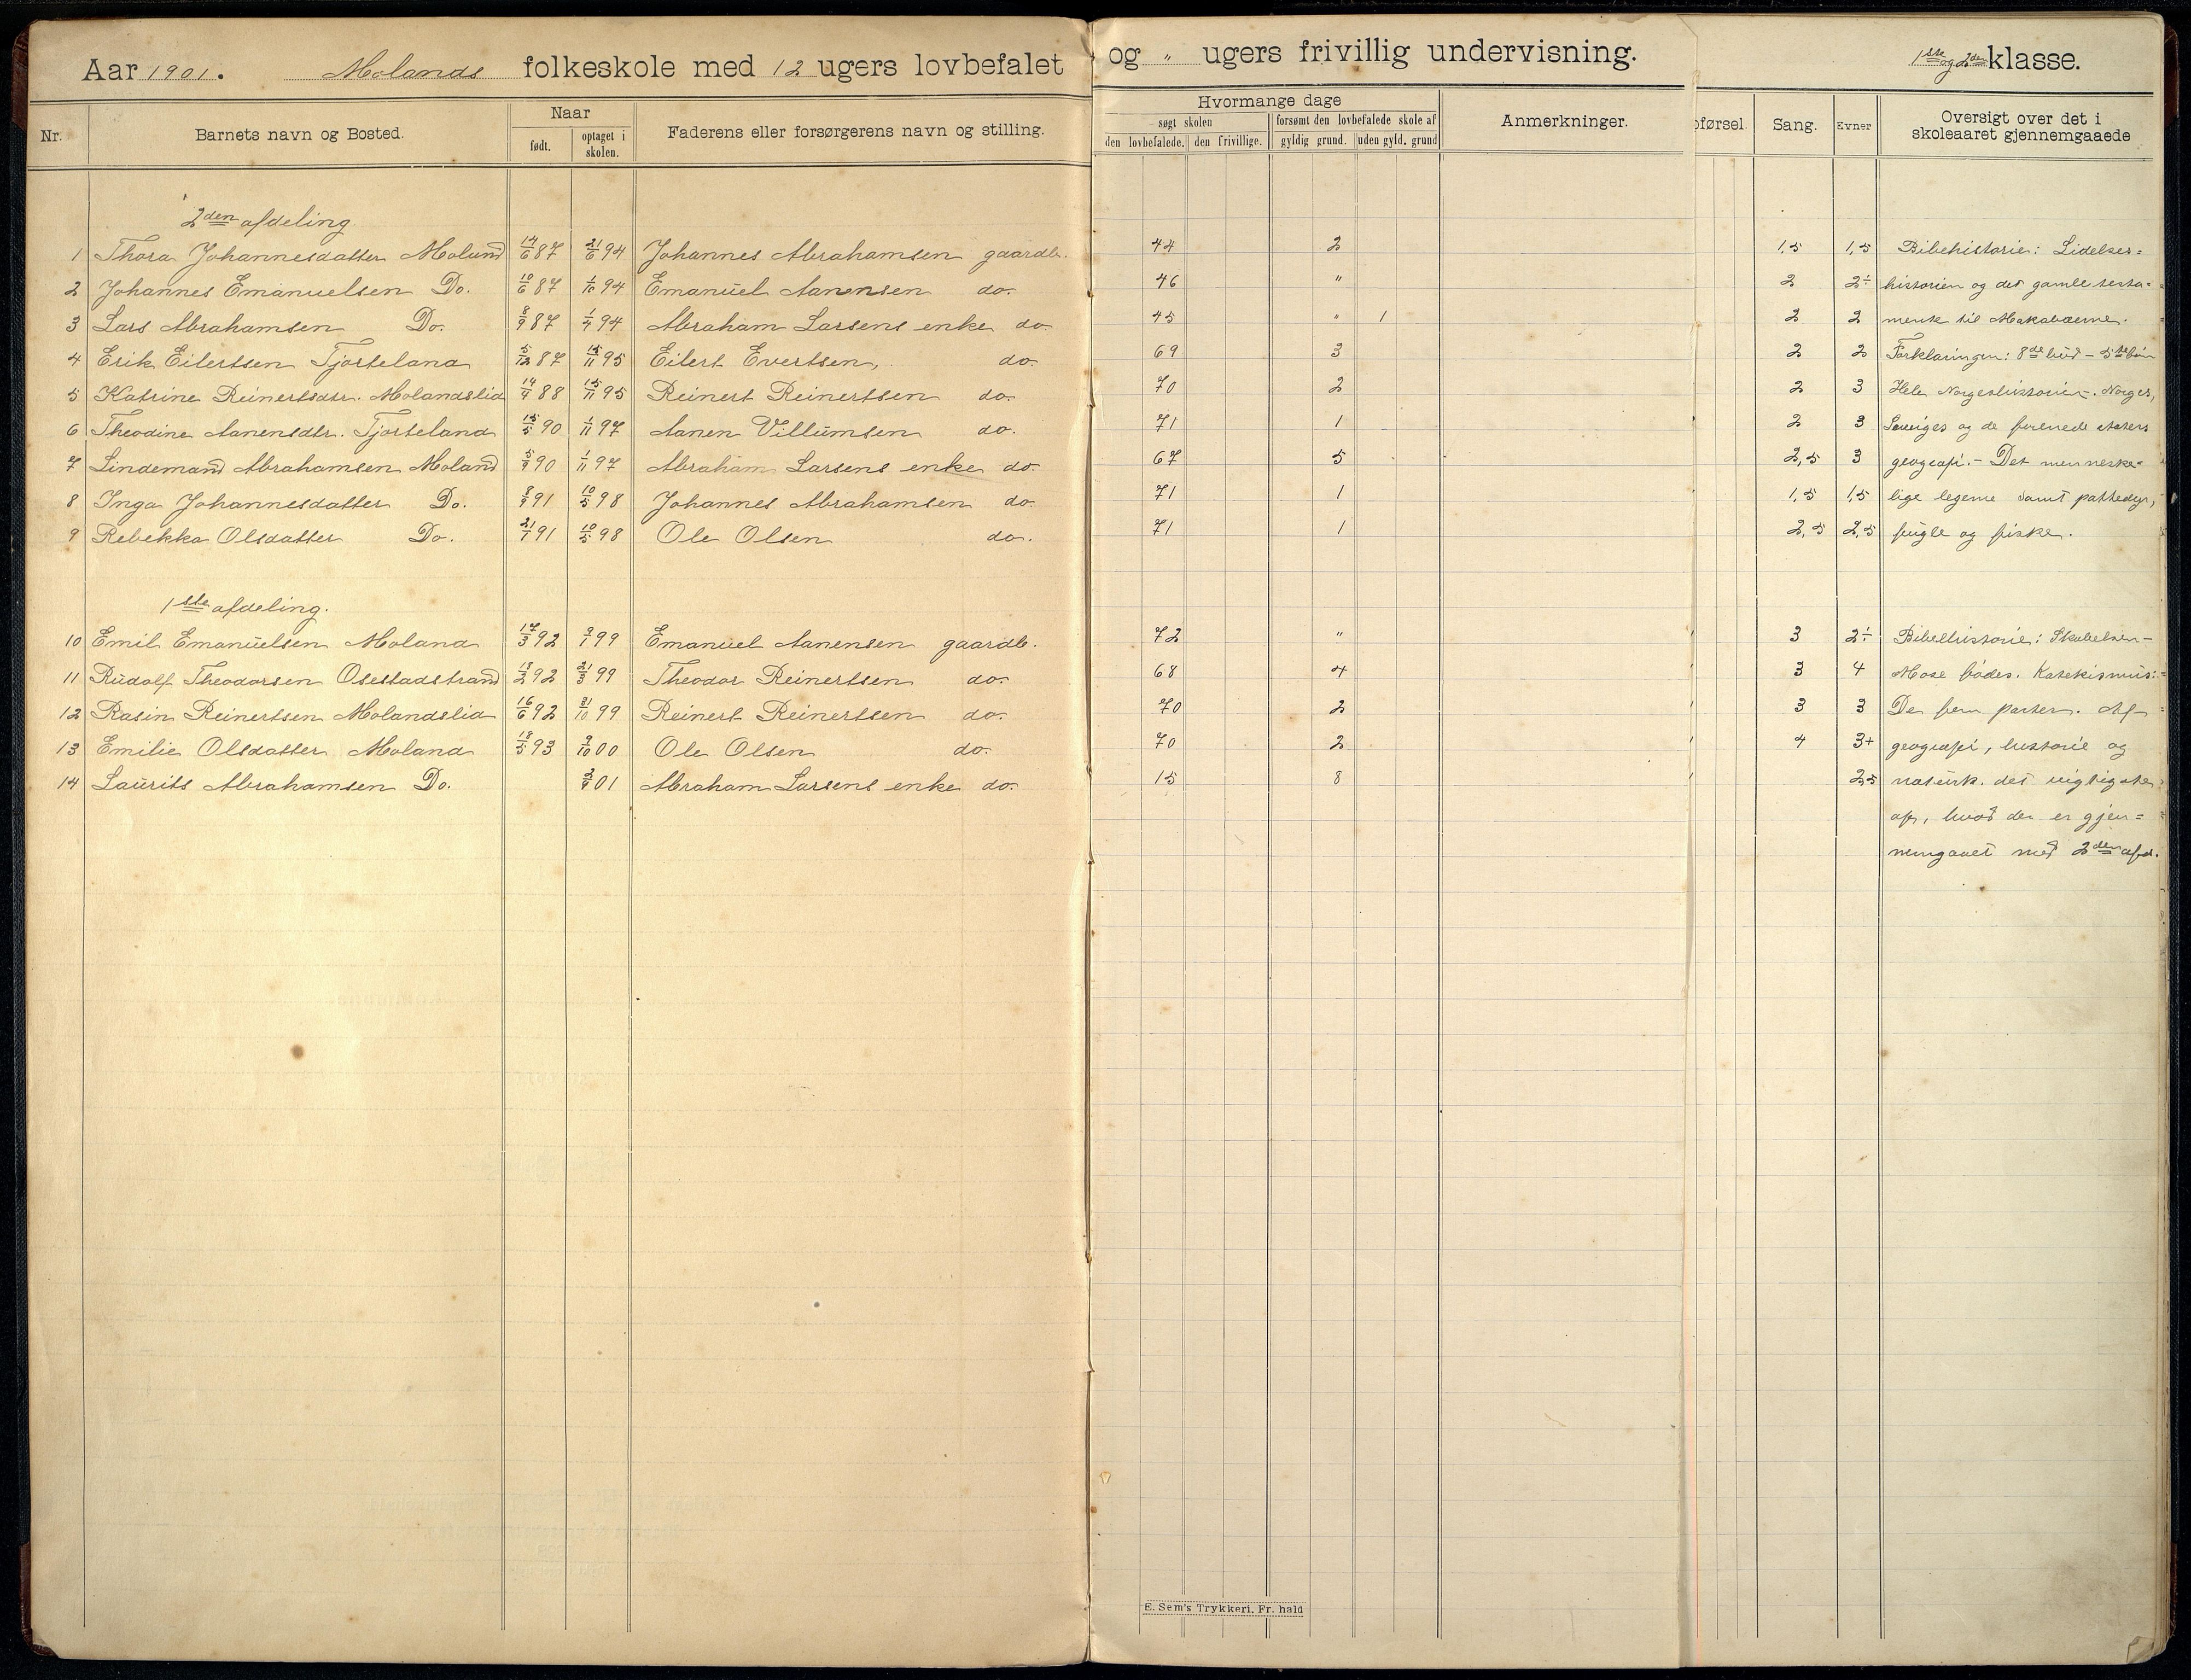 Aar 1901. Molands folkeskole med 12 ugers lovbefalet og " ugers frivillig undervisning. 1ste og 2den klasse.
Nr. Barnets navn og Bosted. Naar født. optaget i skolen. Faderens eller forsørgerens navn og stilling. Hvormange dage søgt skolen den lovbefalede. den frivillige. forsømt den lovbefalede skole af gyldig grund. uden gyld. grund Anmerkninger. førsel. Sang. Evner Oversigt over det i skoleaaret gjennemgaaede
2den afdeling
1 Thora Johannesdatter Moland 14/6 87 21/6 94 Johannes Abrahamsen gaardb. 44 2 1,5 1,5 Bibehistorie: Lidelses=
2 Johannes Emanuelsen Do. 10/6 87 1/10 94 Emanuel Aanensen do. 46 " 2 2÷ historien og det gamle testa=
3 Lars Abrahamsen Do. 8/9 87 1/4 94 Abraham Larsens enke do. 45 " 1 2 2 mente til Makabæerne.
4 Erik Eilertsen Tjorteland 5/12 87 15/11 95 Eilert Evertsen, do. 69 3 2 2 Forklaringen: 8de bud – 5te bøn
5 Katrine Reinertsdtr. Molandslid 14/4 88 15/11 95 Reinert Reinertsen do. 70 2 2 3 Hele Norgeshistorien. Norges,
6 Theodine Aanensdtr. Tjorteland 15/5 90 1/11 97 Aanen Villumsen do. 71 1 2 3 Sveriges og de forenede staters
7 Lindemand Abrahamsen Moland 5/9 90 1/11 97 Abraham Larsens enke do. 67 5 2,5 3 geografi. – Det menneske=
8 Inga Johannesdatter Do. 8/9 91 10/5 98 Johannes Abrahamsen do. 71 1 1,5 1,5 lige legeme samt pattedyr,
9 Rebekka Olsdatter Do. 21/7 91 10/5 98 Ole Olsen do. 71 1 2,5 2,5 fugle og fiske.
1ste afdeling.
10 Emil Emanuelsen Moland 17/3 92 99 Emanuel Aanensen gaardb. 72 " 3 2÷ Bibelhistorie: Skabelsen –
11 Rudolf Theodorsen Osestadstrand 18/2 92 21/3 99 Theodor Reinertsen do. 68 4 3 4 Mose fødes. Katekismus:
12 Rasin Reinertsen Molandslid 16/6 92 31/10 99 Reinert Reinertsen do. 70 2 3 3 De fem parter. Af
13 Emilie Olsdatter Moland 18/5 93 9/10 00 Ole Olsen do. 70 2 4 3+ geografi, historie og
14 Laurits Abrahamsen Do. 01 Abraham Larsens enke do. 15 8 25 naturk. det vigtigste
af, hvad der er gjen=
nemgaaet med 2den afd.
E. Sem's Trykkeri, Fr. hald